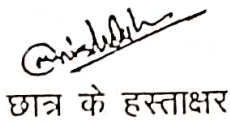 छात्र के हस्ताक्षर